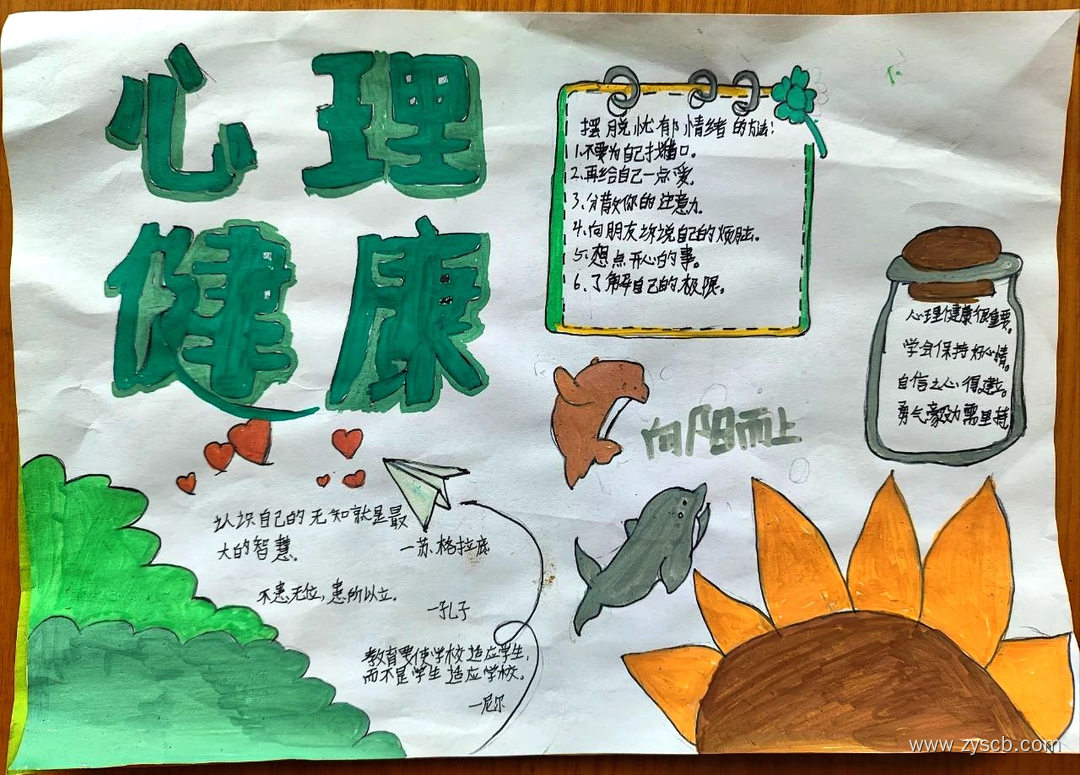 心理
健康
摆脱忧郁情绪的方法:
1.不要为自己找借口。
2.再给自己一点爱。
3.分散你的注意力。
4.向朋友诉说自己的烦脑。
5.想点开心的事。
6.了解自己的极限。
心理健康很重要。
学会保持好心情。
自信之心得建立。
勇气毅力需坚持
向阳而上
认识自己的无知就是最
大的智慧。
—苏格拉底
不患无位,患所以立。
—孔子
教育要使学校适应学生,
而不是学生适应学校。
—尼尔
www.zyscb.com